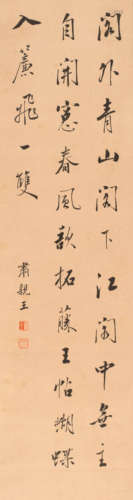 閣外青山閣下江閣中無主
自開窗春風歘拓藤王帖蝴蝶
入簾飛一雙
肅親王